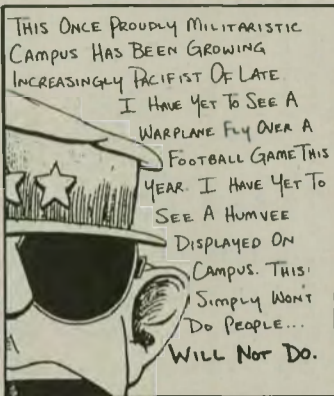 THIS ONCE PROUDLY MILITARISTIC
CAMPUS HAS BEEN GROWING
INCREASINGLY PACIFIST OF LATE
I HAVE YET TO SEE A
WARPLANE FLY OVER A
FOOTBALL GAME THIS
YEAR. I HAVE YET TO
SEE A HUMVEE
DISPLAYED ON
CAMPUS. THIS
SIMPLY WON'T
DO PEOPLE...
WILL NOT DO.